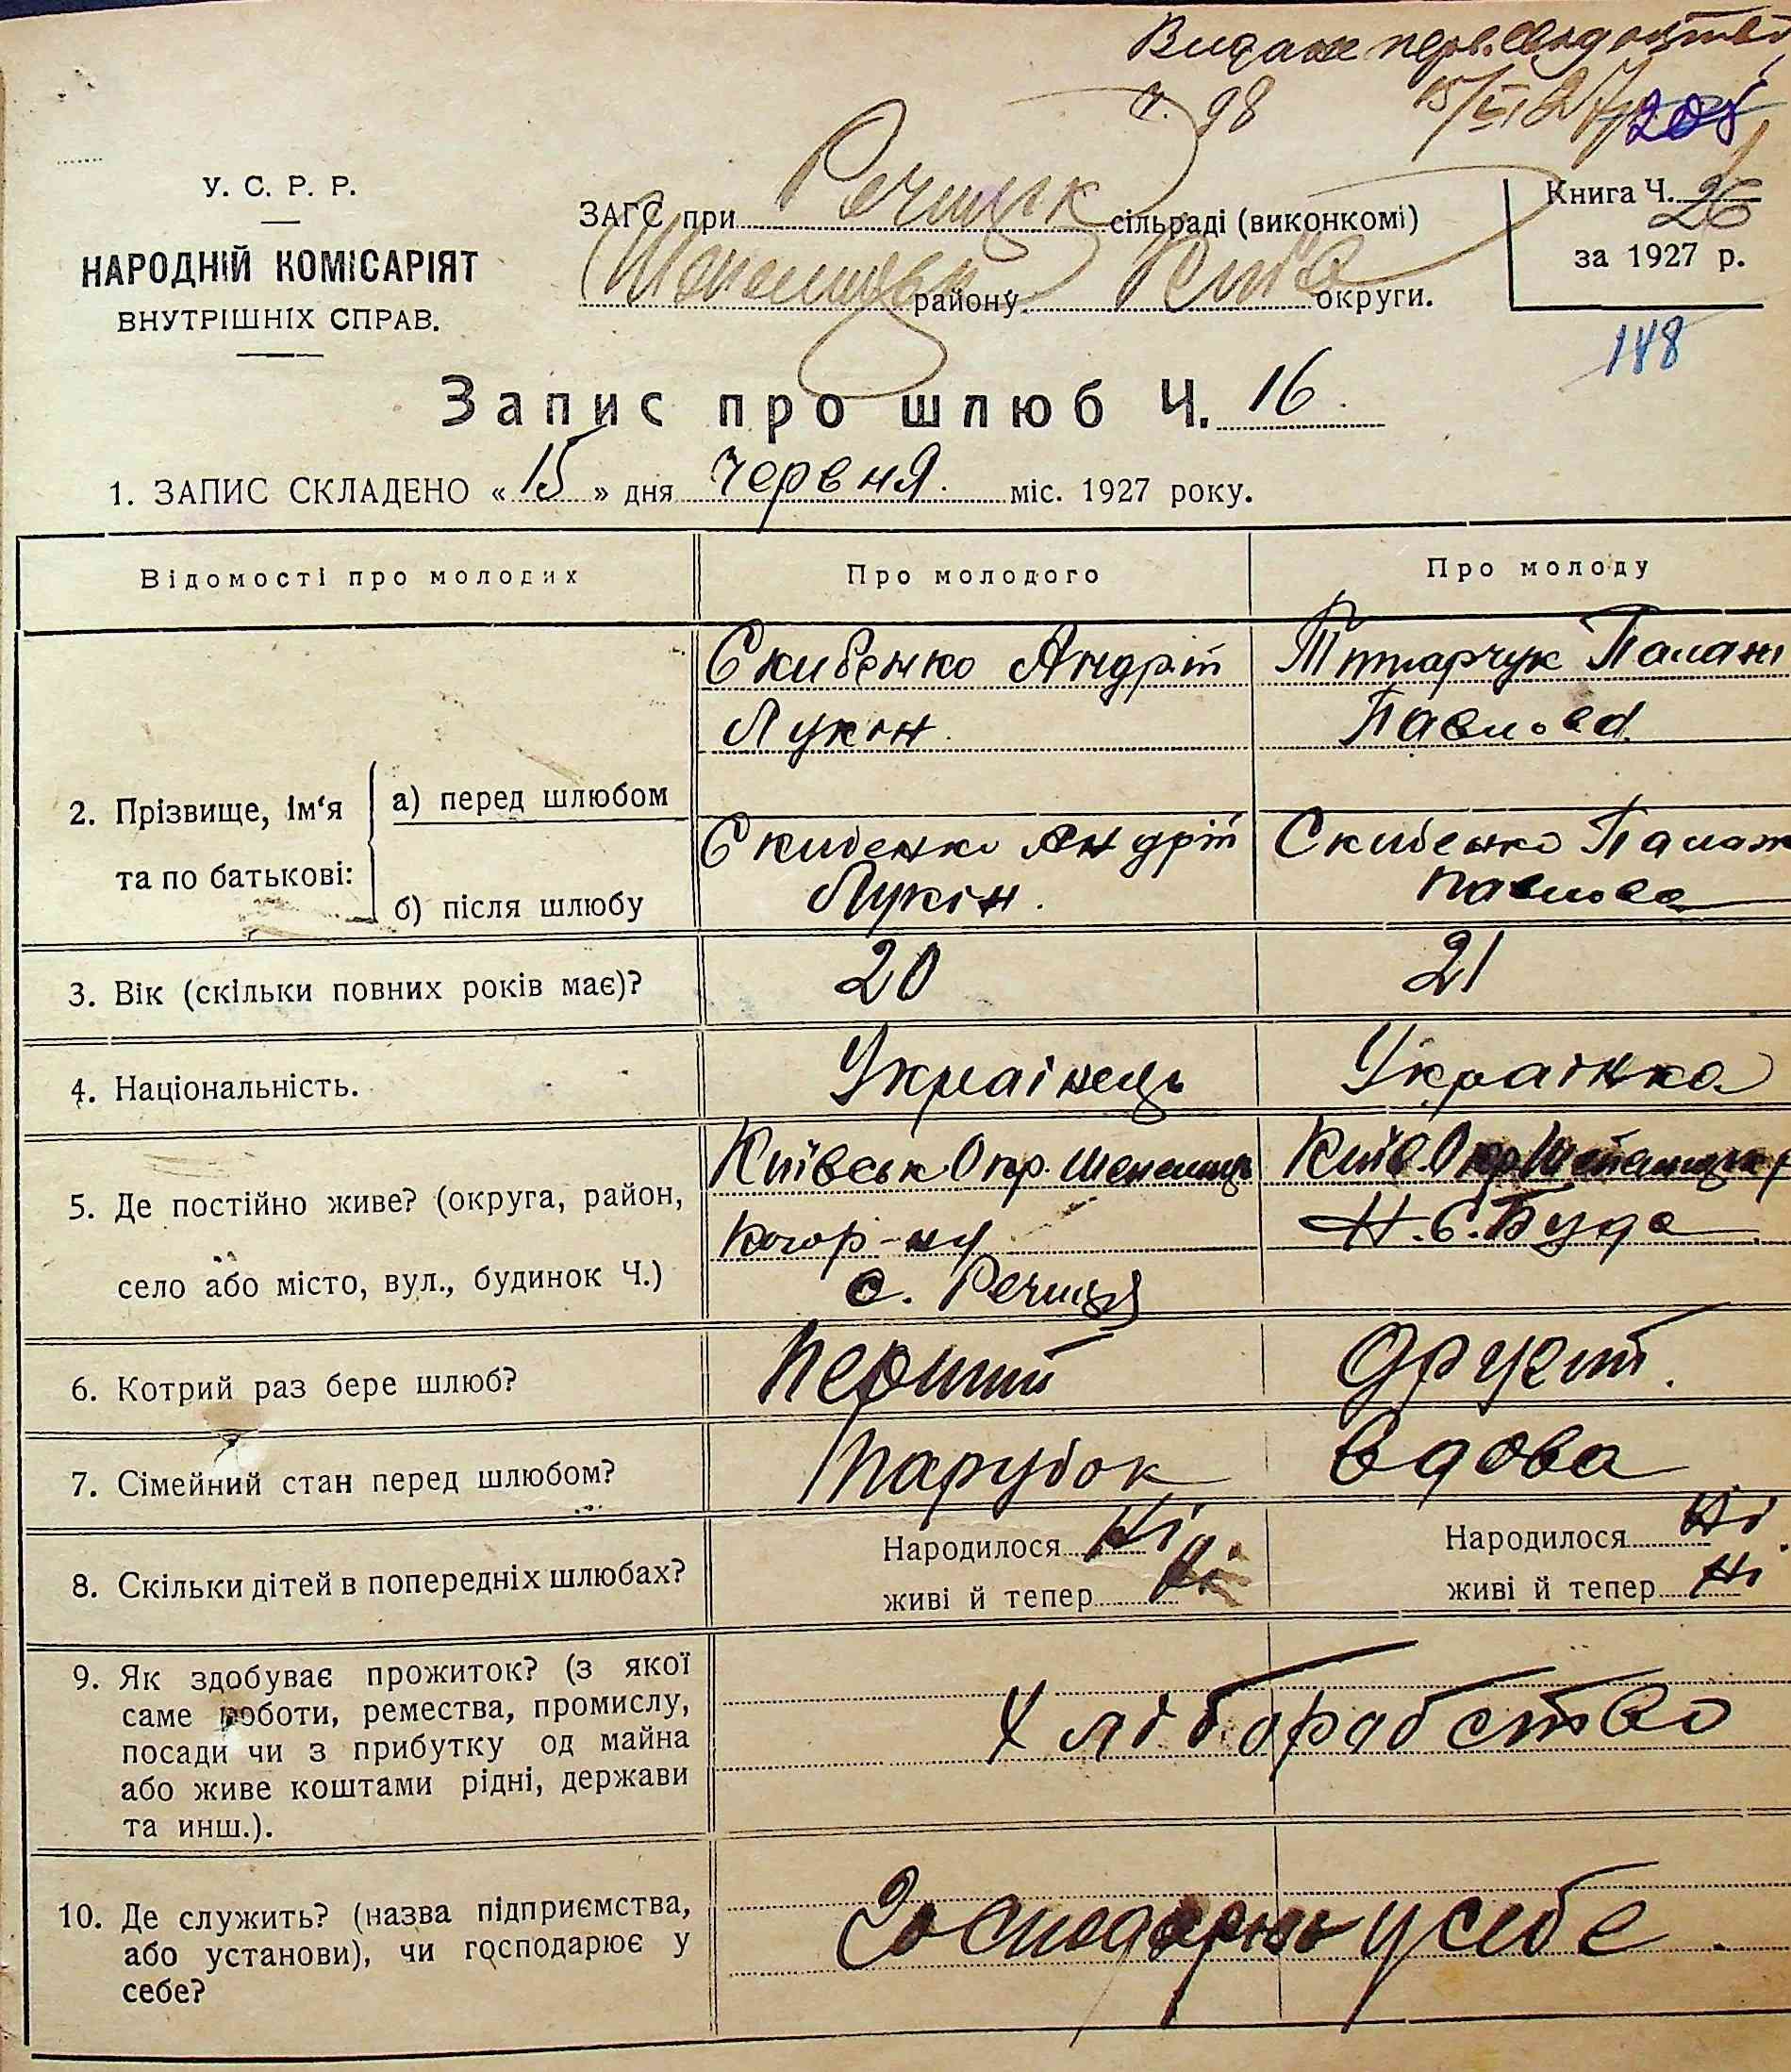 Видане перв. свідоцтво
ч. 98 15/VI 27р 208
У. С. Р. Р.
НАРОДНІЙ КОМІСАРІЯТ
ВНУТРІШНІХ СПРАВ.
ЗАГС при Речицьк сільраді (виконкомі)
Шепелицьк району Київ округи.
Книга Ч. 26
за 1927 р.
148
Запис про шлюб Ч. 16
1. ЗАПИС СКЛАДЕНО «15» дня червня міс. 1927 року.
Відомості про молодих Про молодого Про молоду
2. Прізвище, ім‘я та по батькові:
а) перед шлюбом
Скибенко Андрій
Лукін
Палажі
Павлова
б) після шлюбу
Скибенко Андрій
Лукін.
Скибенко Палаж
Павлова
3. Вік (скільки повних років має)? 20 21
4. Національність. Украінець Украінка
5. Де постійно живе? (округа, район,
село або місто, вул., будинок Ч.)
Київськ Окр. Шепелицьк
с. Речиця
Київ. Окр Шепелицьк р
Н.С. Буда
6. Котрий раз бере шлюб? Перший Другий.
7. Сімейний стан перед шлюбом? Парубок Вдова
8. Скільки дітей в попередніх шлюбах?
Народилося Ні
живі й тепер Ні
Народилося Ні
живі й тепер Ні
9. Як здобуває прожиток? (з якої
саме роботи, ремества, промислу,
посади чи з прибутку од майна
або живе коштами рідні, держави
та инш.).
Хліборобство
10. Де служить? (назва підприємства,
або установи), чи господарює у
себе?
у себе.